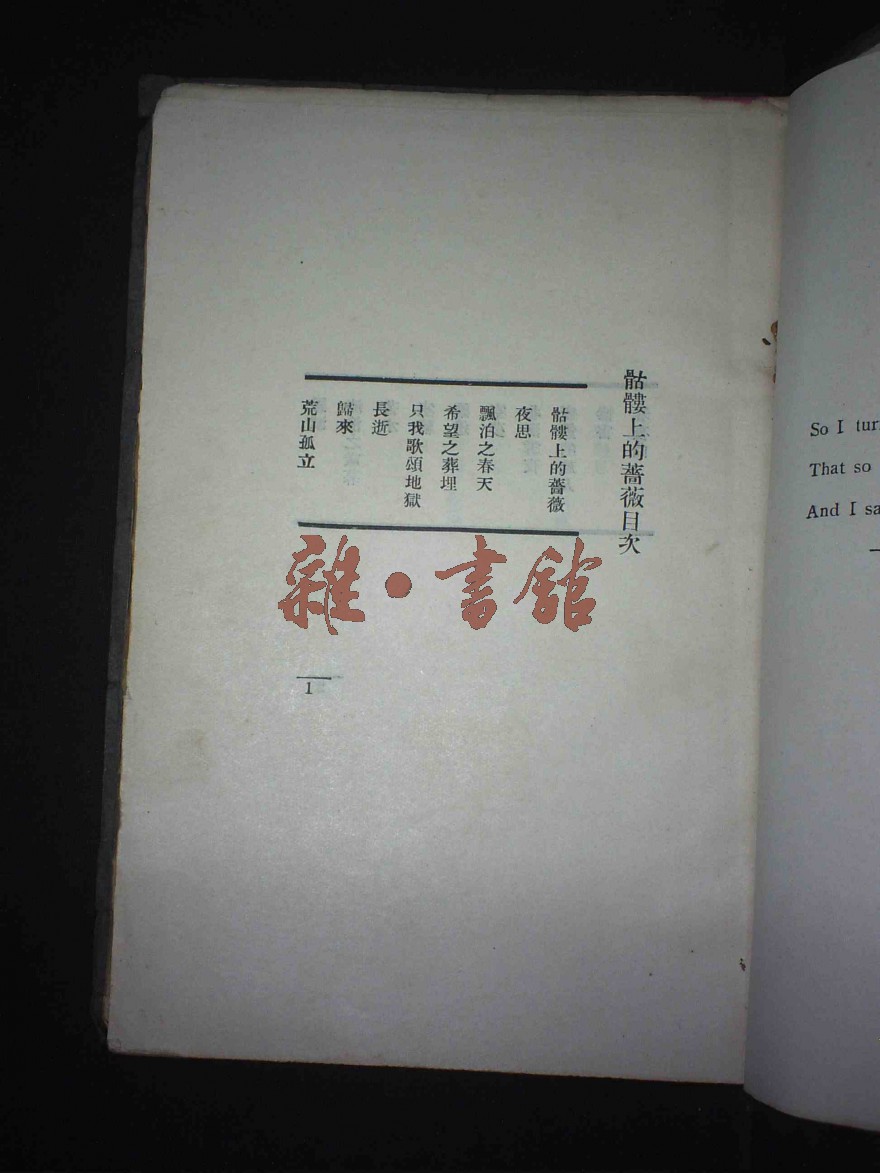 骷髏上的薔薇目次
骷髏上的薔薇
夜思
飄泊之春天
希望之葬埋
只我歌頌地獄
長逝
歸來
荒山孤立
1
雜·書館
So I
That so
And I